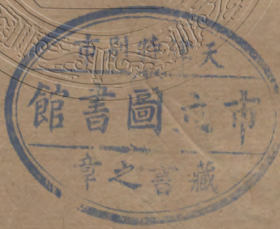 天津特別市
市立圖書館
藏書之章